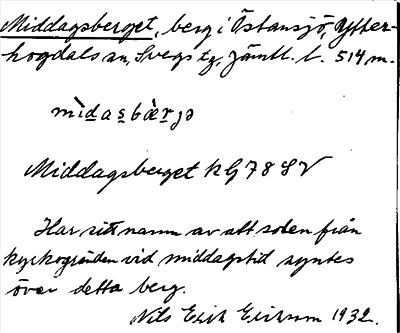 Middagsberget, berg i Östansjö, Ytter-
hogdals sn, Svegs tg, Jämtl. l. 514 m.
mìdasbæ̀rjə
Middagsberget kG 78 SV
Har sitt namn av att solen från
kyrkogränden vid middagstid syntes
över detta berg.
Nils Erik Ericsson 1932.